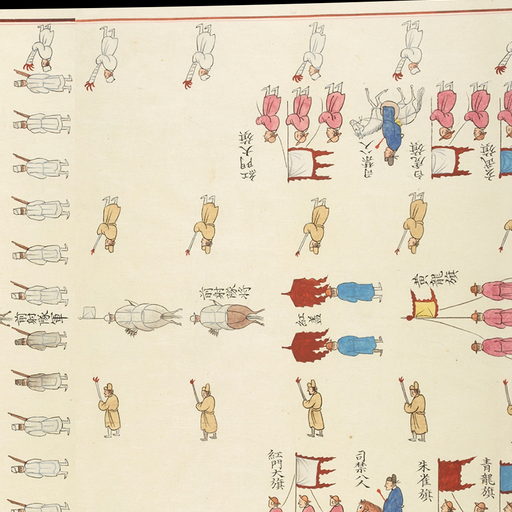 紅門大旗
司禁八人
白虎旗
玄武旗
前射隊軍
前射隊將
紅蓋
黃龍旗
紅門大旗
司禁八人
朱雀旗
青龍旗